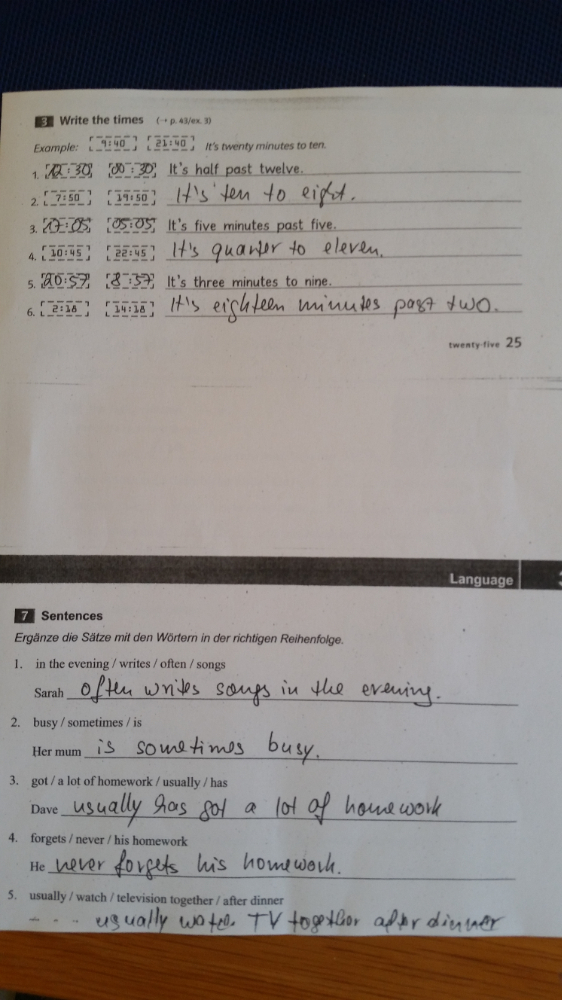 3 Write the times (→ p. 43/ex. 3)
Example: 9:40 21:40 It's twenty minutes to ten.
1. 12:30 00:30 It's half past twelve.
2. 7:50 19:50 It's ten to eight.
3. 17:05 05:05 It's five minutes past five.
4. 10:45 22:45 It's quarter to eleven.
5. 20:57 8:57 It's three minutes to nine.
6. 2:18 14:18 It's eighteen minutes past two.
twenty-five 25
Language
7 Sentences
Ergänze die Sätze mit den Wörtern in der richtigen Reihenfolge.
1. in the evening / writes / often / songs
Sarah often writes songs in the evening.
2. busy / sometimes / is
Her mum is sometimes busy.
3. got / a lot of homework / usually / has
Dave usually has got a lot of homework
4. forgets / never / his homework
He never forgets his homework.
5. usually / watch / television together / after dinner
usually watch TV together after dinner